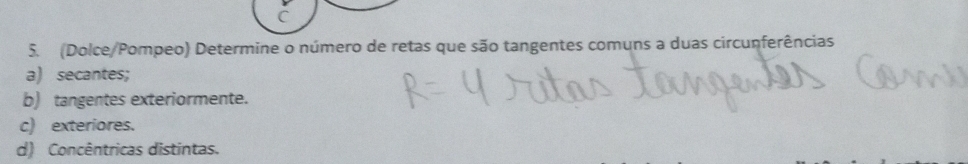 C
5. (Dolce/Pompeo) Determine o número de retas que são tangentes comuns a duas circunferências
a) secantes;
b) tangentes exteriormente.
c) exteriores.
d) Concêntricas distintas.
R = 4 ritas tangentes Comu